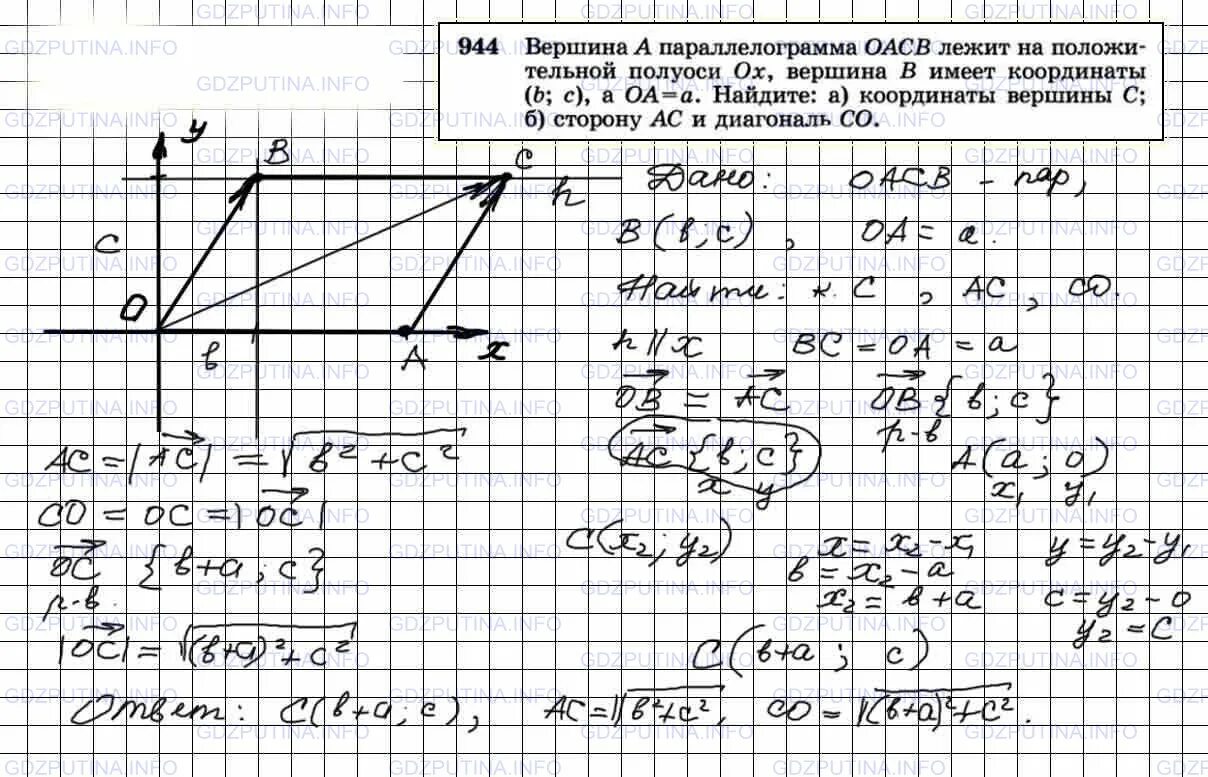 944 Вершина A параллелограмма OACB лежит на положи-
тельной полуоси Ox, вершина B имеет координаты
(b; c), а OA=a. Найдите: а) координаты вершины C;
б) сторону AC и диагональ CO.
y
B
C
h
c
O
в
A
x
Дано: OACB – пар,
B(в; c), OA = a.
Найти: к. C, AC, CO.
h || x BC = OA = a
OB = AC OB {в; c}
р-в
AC {в; c} A(a; 0)
x y x₁ y₁
C(x₂; y₂) x = x₂ - x₁ y = y₂ - y₁
в = x₂ - a
x₂ = в + a c = y₂ - 0
y₂ = c
C(в+a; c)
AC = |AC| = √в² + c²
CO = OC = |OC|
OC {в+a; c}
р-в.
|OC| = √(в+a)² + c²
Ответ: C(в+a; c), AC = √в²+c², CO = √(в+a)²+c².
GDZPUTINA.INFO